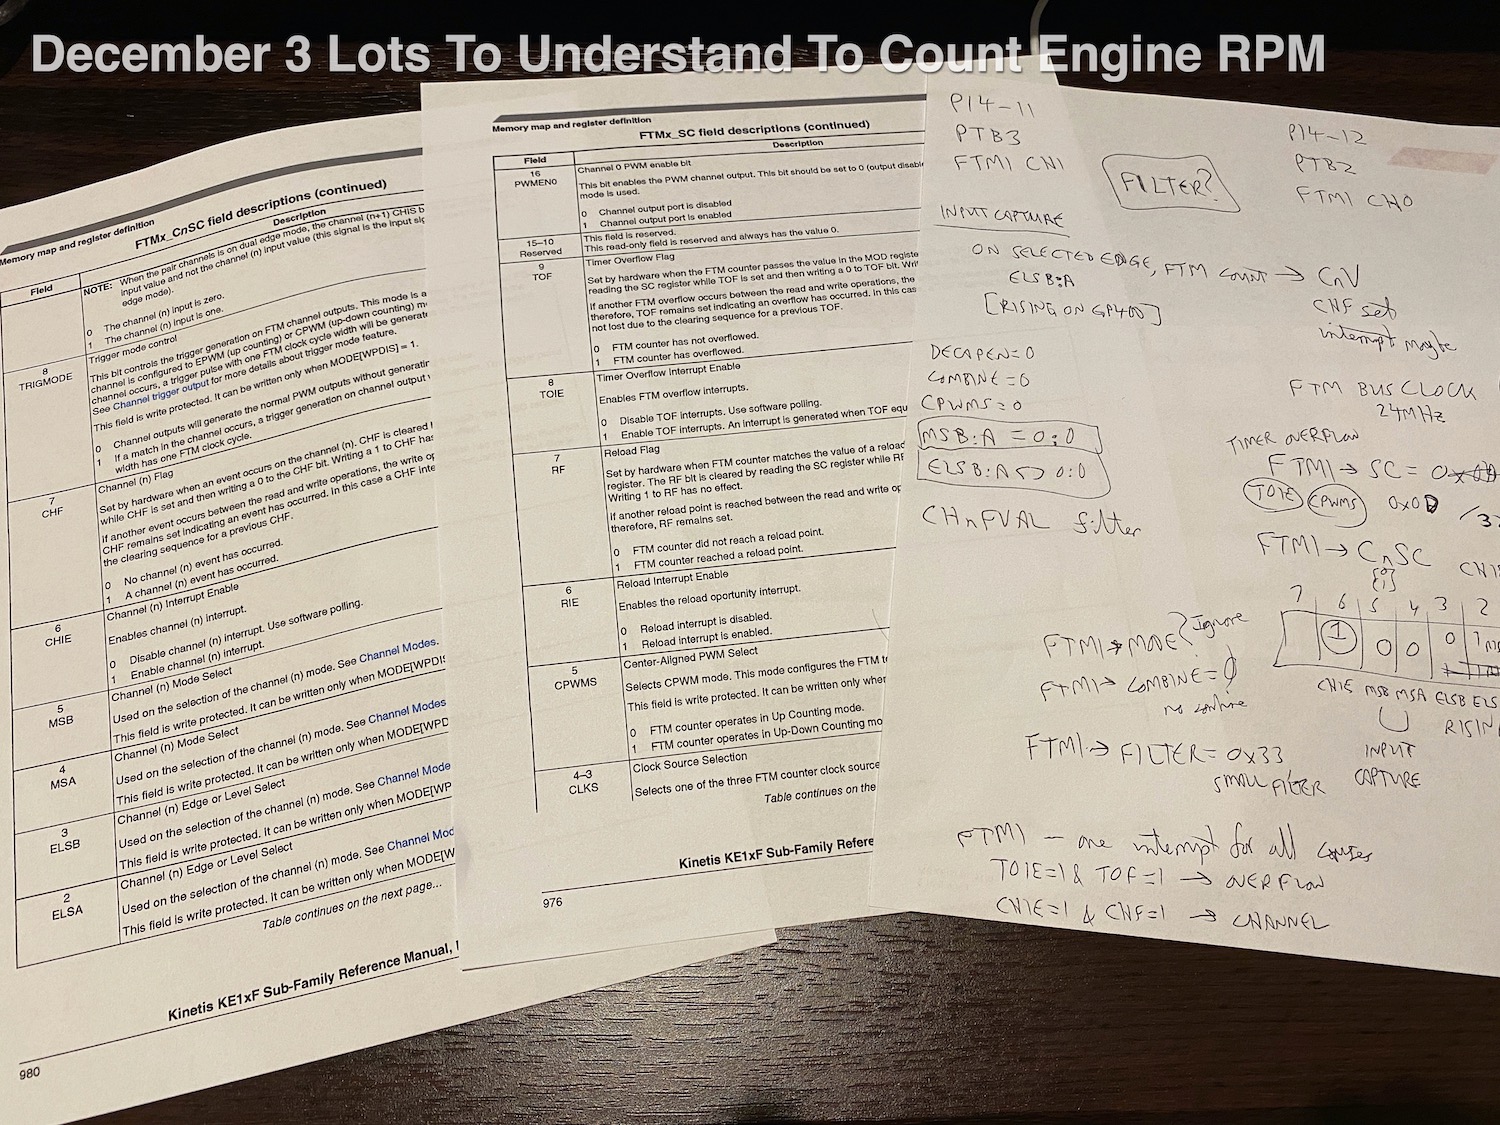 December 3 Lots To Understand To Count Engine RPM
Memory map and register definition
FTMx_CnSC field descriptions (continued)
Field
Description
NOTE: When the pair channels is on dual edge mode, the channel (n+1) CHIS b
input value and not the channel (n) input value (this signal is the input sig
edge mode).
0 The channel (n) input is zero.
1 The channel (n) input is one.
8
TRIGMODE
Trigger mode control
This bit controls the trigger generation on FTM channel outputs. This mode is a
channel is configured to EPWM (up counting) or CPWM (up-down counting) m
channel occurs, a trigger pulse with one FTM clock cycle width will be generate
See Channel trigger output for more details about trigger mode feature.
This field is write protected. It can be written only when MODE[WPDIS] = 1.
0 Channel outputs will generate the normal PWM outputs without generatin
1 If a match in the channel occurs, a trigger generation on channel output
width has one FTM clock cycle.
7
CHF
Channel (n) Flag
Set by hardware when an event occurs on the channel (n). CHF is cleared
while CHF is set and then writing a 0 to the CHF bit. Writing a 1 to CHF has
If another event occurs between the read and write operations, the write op
CHF remains set indicating an event has occurred. In this case a CHF inte
the clearing sequence for a previous CHF.
0 No channel (n) event has occurred.
1 A channel (n) event has occurred.
6
CHIE
Channel (n) Interrupt Enable
Enables channel (n) interrupt.
0 Disable channel (n) interrupt. Use software polling.
1 Enable channel (n) interrupt.
5
MSB
Channel (n) Mode Select
Used on the selection of the channel (n) mode. See Channel Modes.
This field is write protected. It can be written only when MODE[WPDIS
4
MSA
Channel (n) Mode Select
Used on the selection of the channel (n) mode. See Channel Modes
This field is write protected. It can be written only when MODE[WPD
3
ELSB
Channel (n) Edge or Level Select
Used on the selection of the channel (n) mode. See Channel Mode
This field is write protected. It can be written only when MODE[WP
2
ELSA
Channel (n) Edge or Level Select
Used on the selection of the channel (n) mode. See Channel Mod
This field is write protected. It can be written only when MODE[W
Table continues on the next page...
Kinetis KE1xF Sub-Family Reference Manual,
980
Memory map and register definition
FTMx_SC field descriptions (continued)
Field
Description
16
PWMEN0
Channel 0 PWM enable bit
This bit enables the PWM channel output. This bit should be set to 0 (output disabl
mode is used.
0 Channel output port is disabled
1 Channel output port is enabled
15–10
Reserved
This field is reserved.
This read-only field is reserved and always has the value 0.
9
TOF
Timer Overflow Flag
Set by hardware when the FTM counter passes the value in the MOD registe
reading the SC register while TOF is set and then writing a 0 to TOF bit. Wri
If another FTM overflow occurs between the read and write operations, the
therefore, TOF remains set indicating an overflow has occurred. In this cas
not lost due to the clearing sequence for a previous TOF.
0 FTM counter has not overflowed.
1 FTM counter has overflowed.
8
TOIE
Timer Overflow Interrupt Enable
Enables FTM overflow interrupts.
0 Disable TOF interrupts. Use software polling.
1 Enable TOF interrupts. An interrupt is generated when TOF equ
7
RF
Reload Flag
Set by hardware when FTM counter matches the value of a reload
register. The RF bit is cleared by reading the SC register while RF
Writing 1 to RF has no effect.
If another reload point is reached between the read and write op
therefore, RF remains set.
0 FTM counter did not reach a reload point.
1 FTM counter reached a reload point.
6
RIE
Reload Interrupt Enable
Enables the reload oportunity interrupt.
0 Reload interrupt is disabled.
1 Reload interrupt is enabled.
5
CPWMS
Center-Aligned PWM Select
Selects CPWM mode. This mode configures the FTM t
This field is write protected. It can be written only whe
0 FTM counter operates in Up Counting mode.
1 FTM counter operates in Up-Down Counting mo
4–3
CLKS
Clock Source Selection
Selects one of the three FTM counter clock source
Table continues on the
Kinetis KE1xF Sub-Family Refere
976
P14-11
PTB3
FTM1 CH1
FILTER?
P14-12
PTB2
FTM1 CH0
INPUT CAPTURE
ON SELECTED EDGE, FTM COUNT → CnV
ELSB:A
CHF set
[RISING ON GP400]
interrupt maybe
DECAPEN=0
COMBINE=0
CPWMS=0
MSB:A = 0:0
ELSB:A <> 0:0
CHnFVAL filter
FTM BUS CLOCK
24MHz
TIMER OVERFLOW
FTM1→SC = 0x
TOIE CPWMS 0x0D /32
FTM1→CnSC
{0}
{1}
7 6 5 4 3 2
1 0 0 0 1
CHIE MSB MSA ELSB ELS
INPUT
CAPTURE
RISING
FTM1→MODE? ignore
FTM1→COMBINE=0
FTM1→FILTER=0x33
SMALL FILTER
FTM1 — one interrupt for all
TOIE=1 & TOF=1 → OVERFLOW
CHIE=1 & CHF=1 → CHANNEL